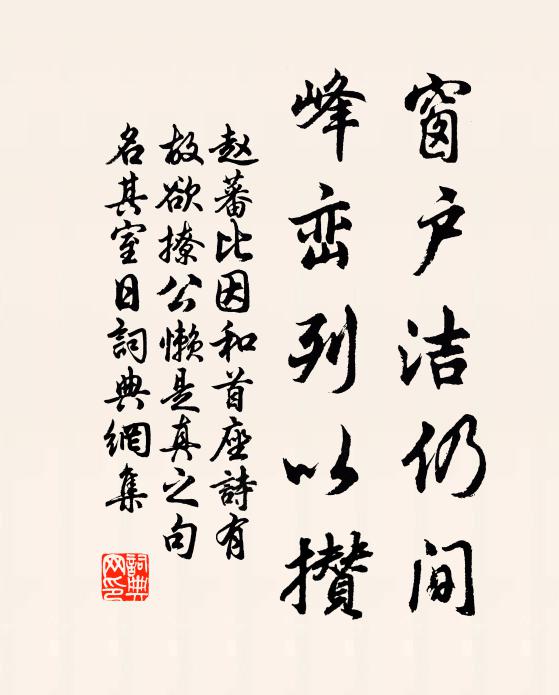 窗户洁仍间
峰峦列以攒
赵蕃比因和首座詩有
故欲撩公懒是真之句
名其室日詞典網集
詞典网印